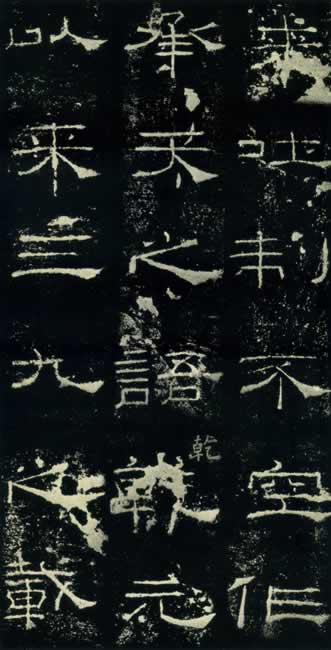 来吐制不空作
承天之語乾元
乾
以来三九之載